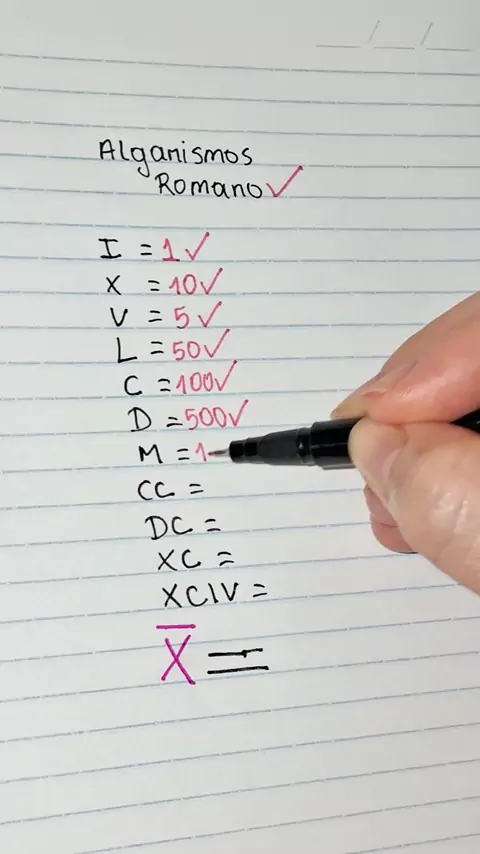 Alganismos
Romano✓
I = 1✓
X = 10✓
V = 5✓
L = 50✓
C = 100✓
D = 500✓
M = 1
CC =
DC =
XC =
XCIV =
X̅ =